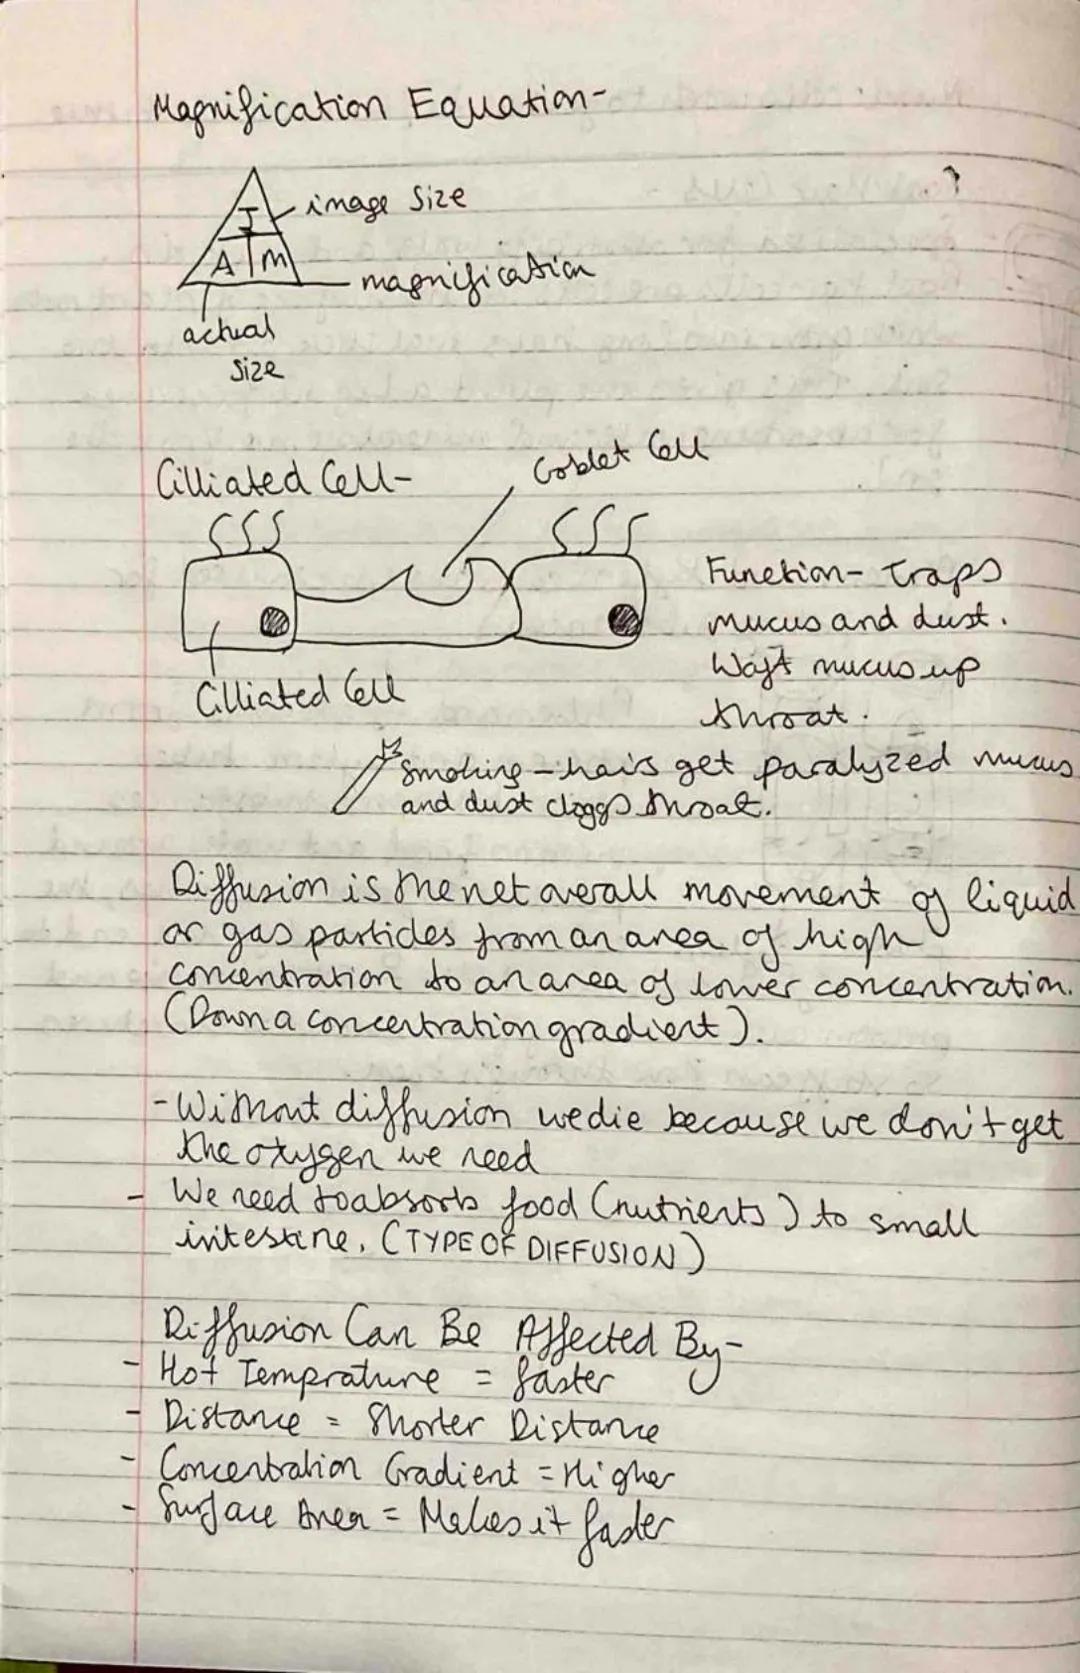 Magnification Equation-
I
image Size
A M
magnification
actual
Size
Cilliated Cell-
Goblet Cell
Function- Traps
mucus and dust.
Waft mucus up
throat.
Cilliated Cell
Smoking - hairs get paralyzed mucus
and dust cloggs throat.
Diffusion is the net overall movement of liquid
or gas particles from an area of high
concentration to an area of lower concentration.
(Down a concentration gradient).
- Without diffusion we die because we don't get
the oxygen we need
- We need to absorb food (nutrients) to small
intestine. (TYPE OF DIFFUSION)
Diffusion Can Be Affected By-
- Hot Temprature = faster
- Distance = Shorter Distance
- Concentration Gradient = Higher
- Surface Area = Makes it faster